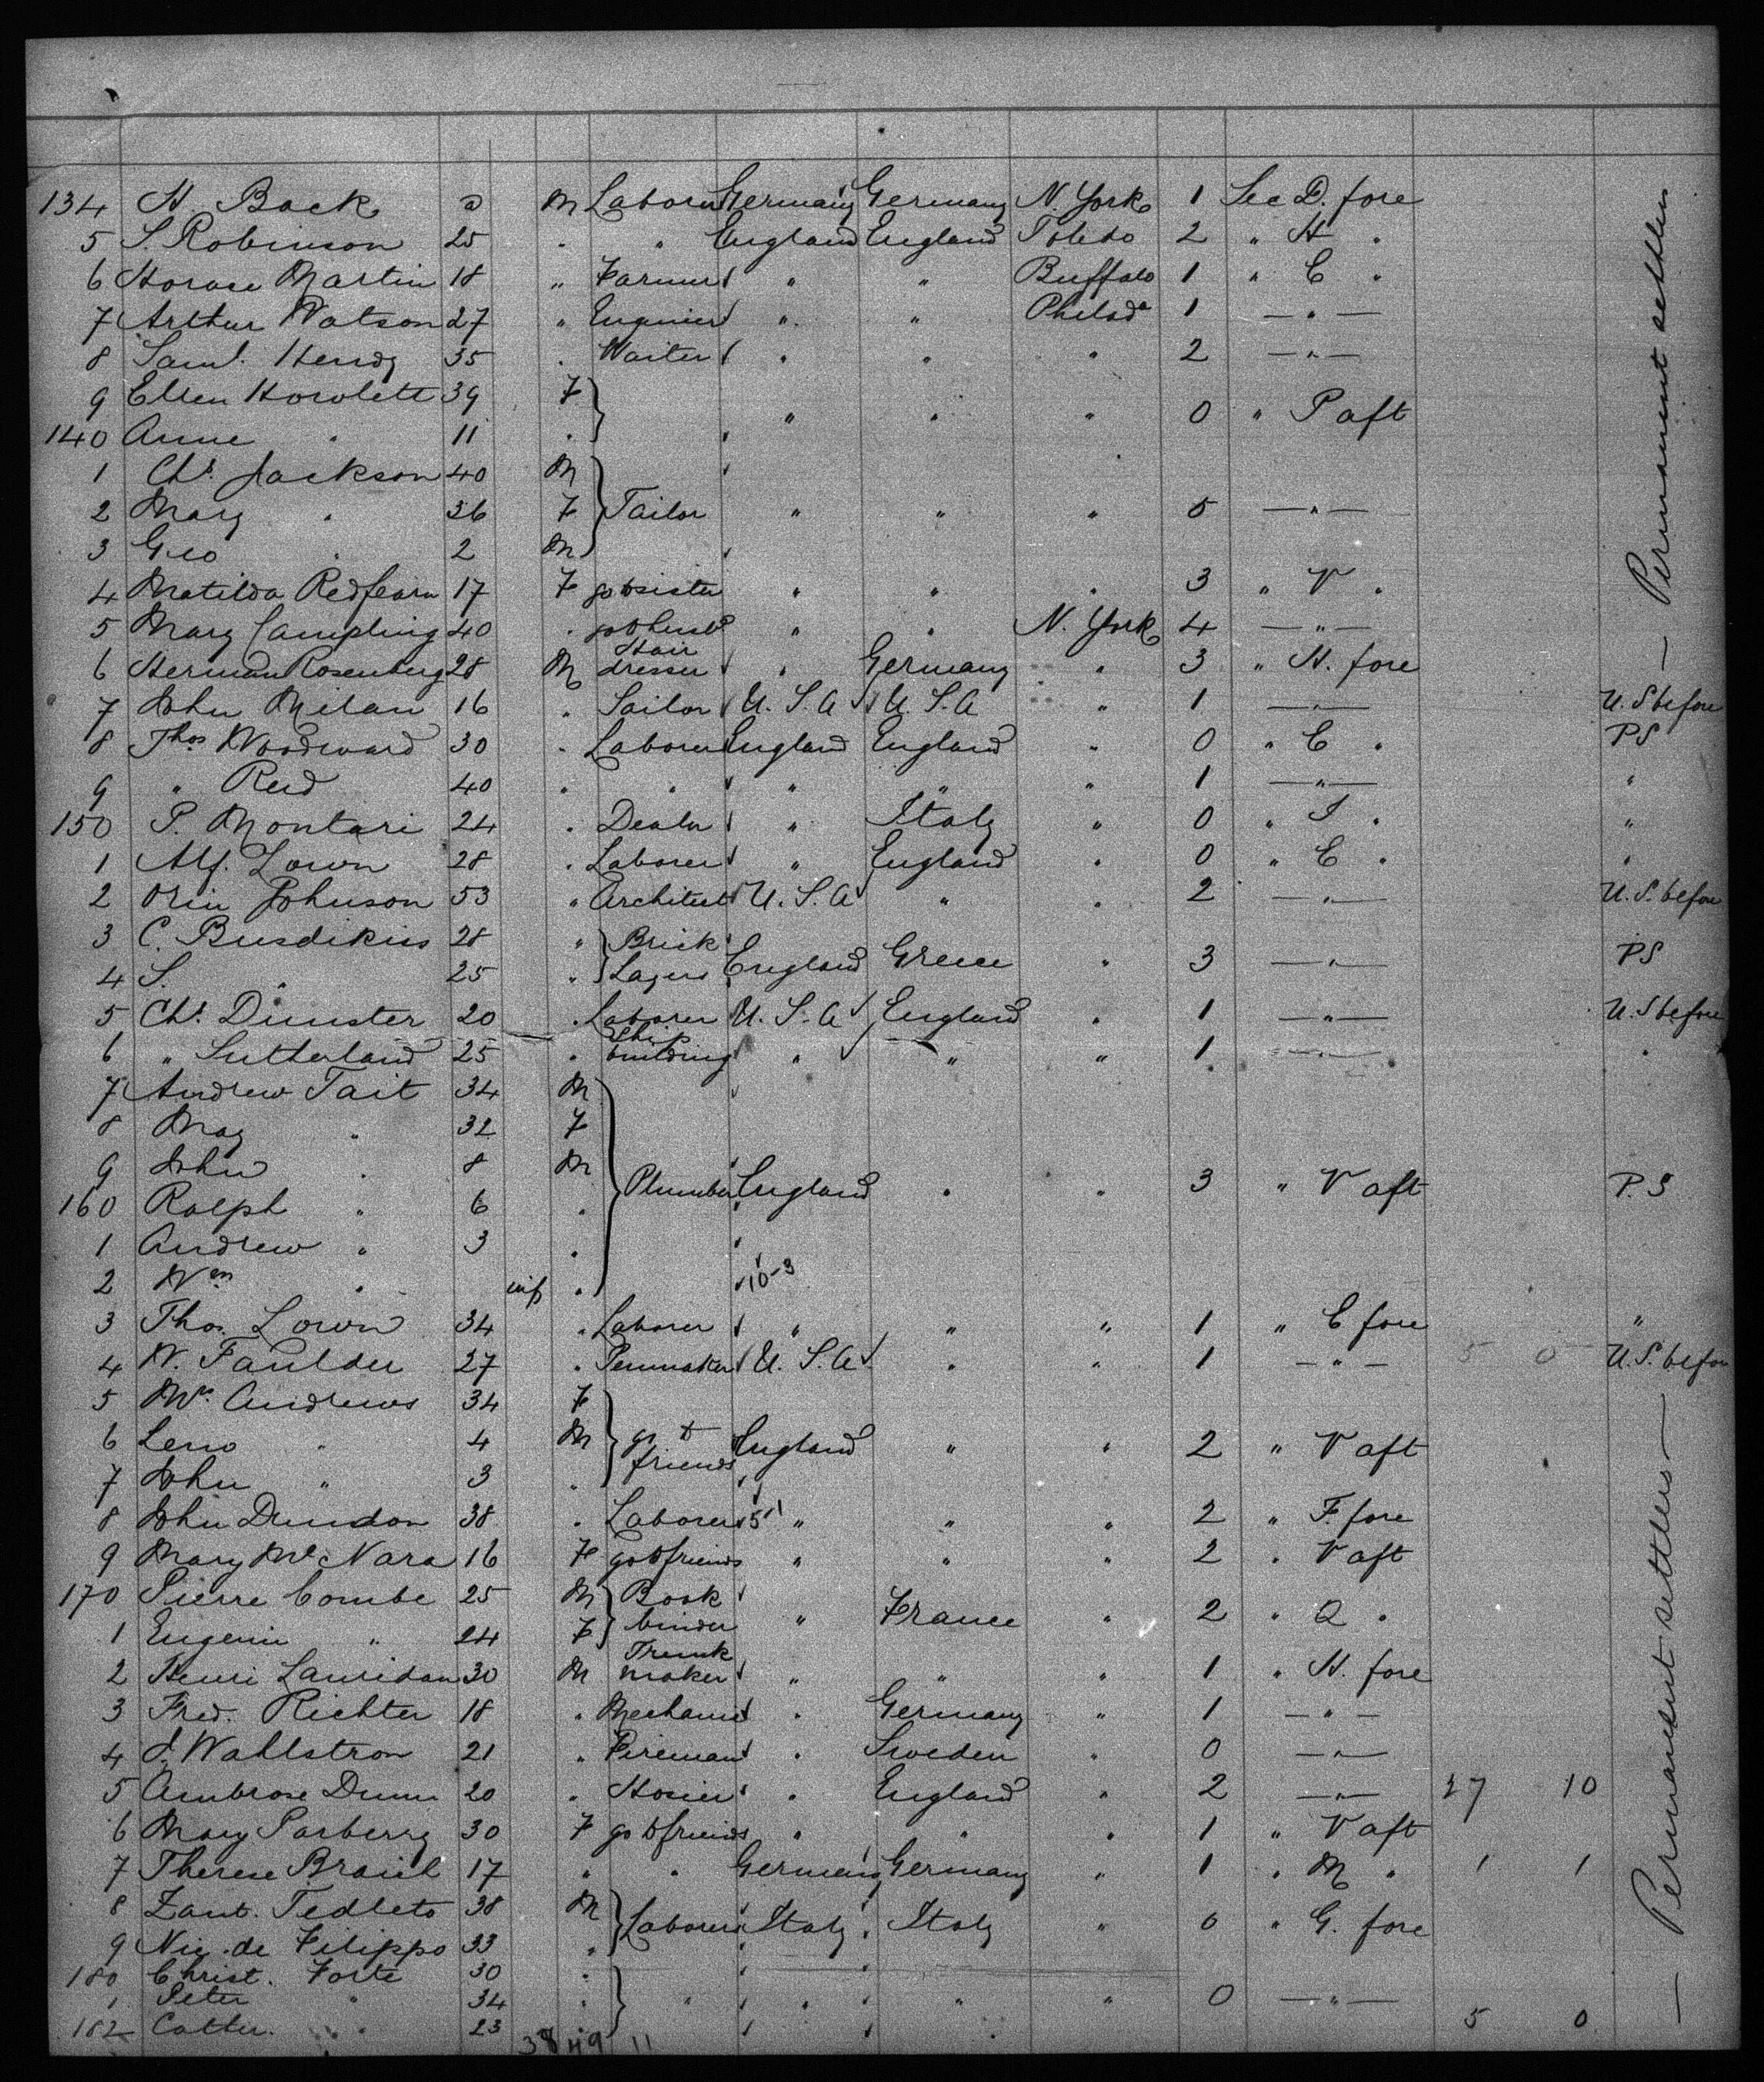 134 H. Bock a M Laborer Germany Germany N. York 1 Sec D. fore
5 S. Robinson 25 " " England England Toledo 2 " H "
6 Horace Martin 18 " Farmer " " Buffalo 1 " C "
7 Arthur Watson 27 " Engineer " " Philada 1 — " —
8 Saml. Hendy 35 " Waiter " " " 2 — " —
9 Ellen Howlett 39 F " " " 0 " P aft
140 Anne " 11 "
1 Chs. Jackson 40 M
2 Mary " 36 F Tailor " " " 5 — " —
3 Geo " 2 M
4 Matilda Redfearn 17 F go to sister " " " 3 " V "
5 Mary Campling 40 " go to husbd " " N. York 4 — " —
6 Herman Rosenberg 28 M Hair dresser " Germany " 3 " H. fore
7 John Milan 16 " Sailor U. S. A U. S. A " 1 — " — U. S before
8 Thos Woodward 30 " Laborer England England " 0 " C " PS
9 " Reid 40 " " " " " 1 — " — "
150 P. Montari 24 " Dealer " Italy " 0 " I " "
1 Alf. Lown 28 " Laborer " England " 0 " C " "
2 Orin Johnson 53 " Architect U. S. A " " 2 — " — U. S. before
3 C. Busdikiss 28 " Brick
4 S. " 25 " Layers England Greece " 3 — " — PS
5 Chs. Dunster 20 " Laborer U. S. A England " 1 — " — U. S before
6 " Sutherland 25 " Ship building " " " 1 — " — "
7 Andrew Tait 34 M
8 May " 32 F
9 John " 8 M
160 Ralph " 6 " Plumber England " " 3 " V aft P. S
1 Andrew " 3 "
2 Wm " inf " 10-3
3 Thos. Lown 34 " Laborer " " " 1 " C fore "
4 W. Faulder 27 " Penmaker U. S. A " " 1 — " — 5 0 U. S. before
5 Mrs Andrews 34 F
6 Leno " 4 M go to friends England " " 2 " V aft
7 John " 3 "
8 John Dundon 38 " Laborer 51 " " " 2 " F. fore
9 Mary McNara 16 F go to friends " " " 2 " V aft
170 Pierre Combe 25 M Book
1 Eugenie " 24 F binder " France " 2 " Q "
2 Henri Lauridan 30 M Trunk maker " " " 1 " H. fore
3 Fred. Richter 18 " Mechanic " Germany " 1 — " —
4 J. Wahlstron 21 " Fireman " Sweden " 0 — " —
5 Ambrose Dunn 20 " Hosier " England " 2 — " — 27 10
6 Mary Parberry 30 F go to friends " " " 1 " V aft
7 Therese 17 " " Germany Germany " 1 " M " 1 1
8 Zant. Tedleto 38 M
9 Nic. de Filippo 33 " Laborers Italy Italy " 0 " G. fore
180 Christ. Forte 30 "
1 Peter " 34 " " " " " 0 — " —
182 " 23 5 0
38 49 11
— Permanent settlers — Permanent settlers